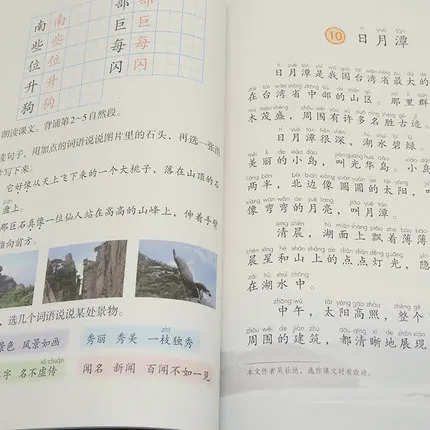 南 南 部
些 些 巨 巨
位 位 每 每
升 升 闪 闪
狗 狗
朗读课文。背诵第2~5自然段。
读句子，用加点的词语说说图片里的石头，再选一张图
写下来。
它好像从天上飞下来的一个大桃子，落在山顶的石
盘上。
那巨石真像一位仙人站在高高的山峰上，伸着手臂
指向前方。
，选几个词语说说某处景物。
景色 风景如画
秀丽 秀美 一枝独秀
字 名不虚传
闻名 新闻 百闻不如一见
10 日月潭
日月潭是我国台湾省最大的
在台湾省中部的山区。那里群
木茂盛，周围有许多名胜古迹。
日月潭很深，湖水碧绿。
美丽的小岛，叫光华岛。小岛
两半，北边像圆圆的太阳，叫
像弯弯的月亮，叫月潭。
清晨，湖面上飘着薄薄
晨星和山上的点点灯光，隐
在湖水中。
中午，太阳高照，整个
周围的建筑，都清晰地展现
本文作者吴壮达，选作课文时有改动。